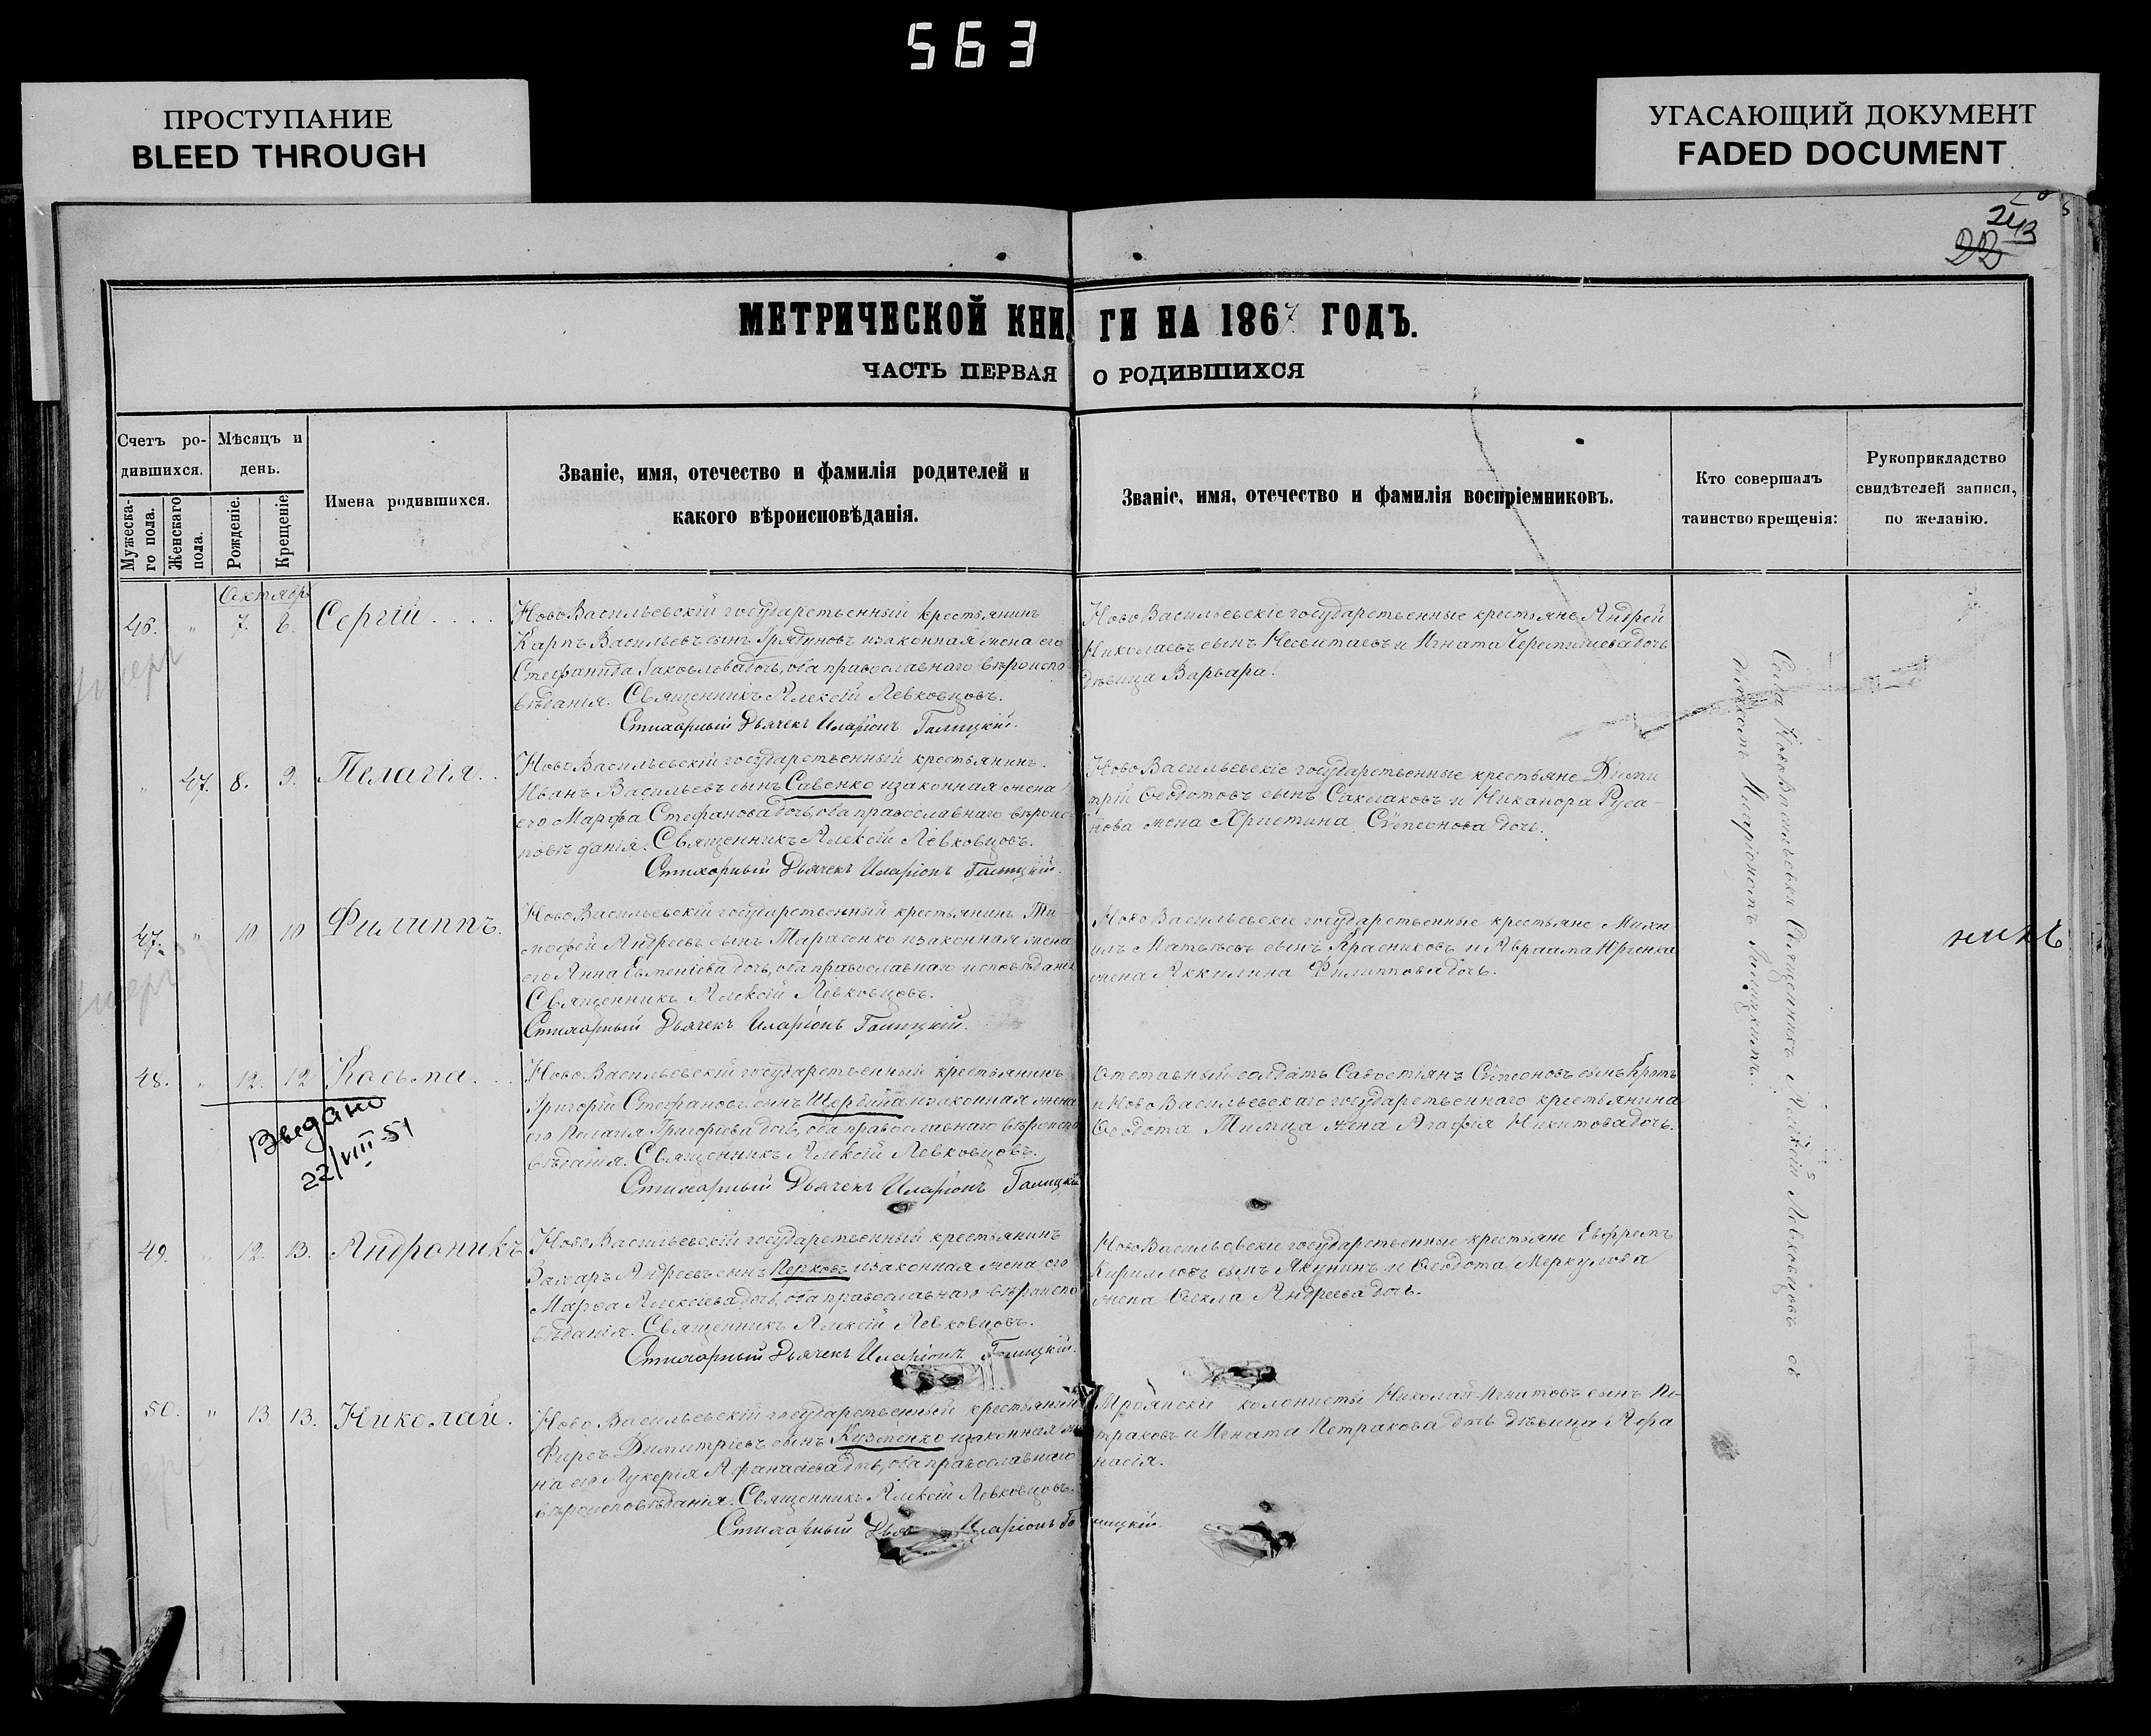 563
ПРОСТУПАНИЕ
BLEED THROUGH
УГАСАЮЩИЙ ДОКУМЕНТ
FADED DOCUMENT
243
22
МЕТРИЧЕСКОЙ КНИГИ НА 1867 ГОДЪ.
ЧАСТЬ ПЕРВАЯ О РОДИВШИХСЯ
Счетъ ро-
дившихся.
Мѣсяцъ и
день.
Мужеска-
го пола.
Женскаго
пола.
Рожденіе.
Крещеніе
Имена родившихся.
Званіе, имя, отечество и фамилія родителей и
какого вѣроисповѣданія.
Званіе, имя, отечество и фамилія воспріемниковъ.
Кто совершалъ
таинство крещенія:
Рукоприкладство
свидѣтелей записи,
по желанію.
Октябрь
46. " 7. 8. Сергій
НовоВасильевскій государственный крестьянинъ
Карпъ Васильевъ сынъ изаконная жена его
Стефанида Яковлева дочь, оба православнаго вѣроиспо-
вѣданія. Священникъ Алексій Левковцовъ.
Стихарный Дьячекъ Иларіонъ Галицкій.
НовоВасильевскіе государственные крестьяне Андрей
Николаевъ сынъ и Игната дочь
дѣвица Варвара.
" 47. 8. 9. Пелагія
НовоВасильевскій государственный крестьянинъ
Иванъ Васильевъ сынъ Савенко изаконная жена
его Марфа Стефанова дочь, оба православнаго вѣроис-
повѣданія. Священникъ Алексій Левковцовъ.
Стихарный Дьячекъ Иларіонъ Галицкій.
НовоВасильевскіе государственные крестьяне Дими-
трій Ѳеодотовъ сынъ и Никанора Руса-
нова жена Христина Сѵмеонова дочь.
47. " 10 10 Филиппъ.
НовоВасильевскій государственный крестьянинъ Ти-
мофей Андреевъ сынъ Тарасенко изаконная жена
его Анна Евменіева дочь, оба православнаго исповѣданія
Священникъ Алексій Левковцовъ.
Стихарный Дьячекъ Иларіонъ Галицкій.
НовоВасильевскіе государственные крестьяне Миха-
илъ Матвѣевъ сынъ и Авраама Юрченка
жена Аккилина Филиппова дочь.
48. " 12. 12 Косьма
НовоВасильевскій государственный крестьянинъ
Григорій Стефановъ сынъ Щербина изаконная жена
его Пелагія Григоріева дочь, оба православнаго вѣроиспо-
вѣданія. Священникъ Алексій Левковцовъ.
Стихарный Дьячекъ Иларіонъ Галицкій
Отставный солдатъ Савостіянъ Сѵмеоновъ сынъ Кротъ
и НовоВасильевскаго государственнаго крестьянина
Ѳеодота жена Агафія Никитова дочь.
22/VIII-51
49. " 12. 13. Андроникъ
НовоВасильевскій государственный крестьянинъ
Захаръ Андреевъ сынъ Перковъ изаконная жена его
Марфа Алексіева дочь, оба православнаго вѣроиспо-
вѣданія. Священникъ Алексій Левковцовъ.
Стихарный Дьячекъ Иларіонъ Галицкій.
НовоВасильевскіе государственные крестьяне Евфремъ
Кирилловъ сынъ Якунинъ и Ѳеодота Меркулова
жена Ѳекла Андреева дочь.
50. " 13 13. Николай.
НовоВасильевскій государственный крестьянинъ
Фирсъ Димитріевъ сынъ Кузменко изаконная же-
на его Лукерія Афанасіева дочь, оба православнаго
вѣроисповѣданія. Священникъ Алексій Левковцовъ.
Стихарный Иларіонъ Галицкій.
колонисты Николай Игнатовъ сынъ Пе-
траковъ и Петракова дочь дѣвица Афа-
насія.
Села НовоВасильевки Священникъ Алексій Левковцовъ съ
дьячкомъ Иларіономъ Галицкимъ.